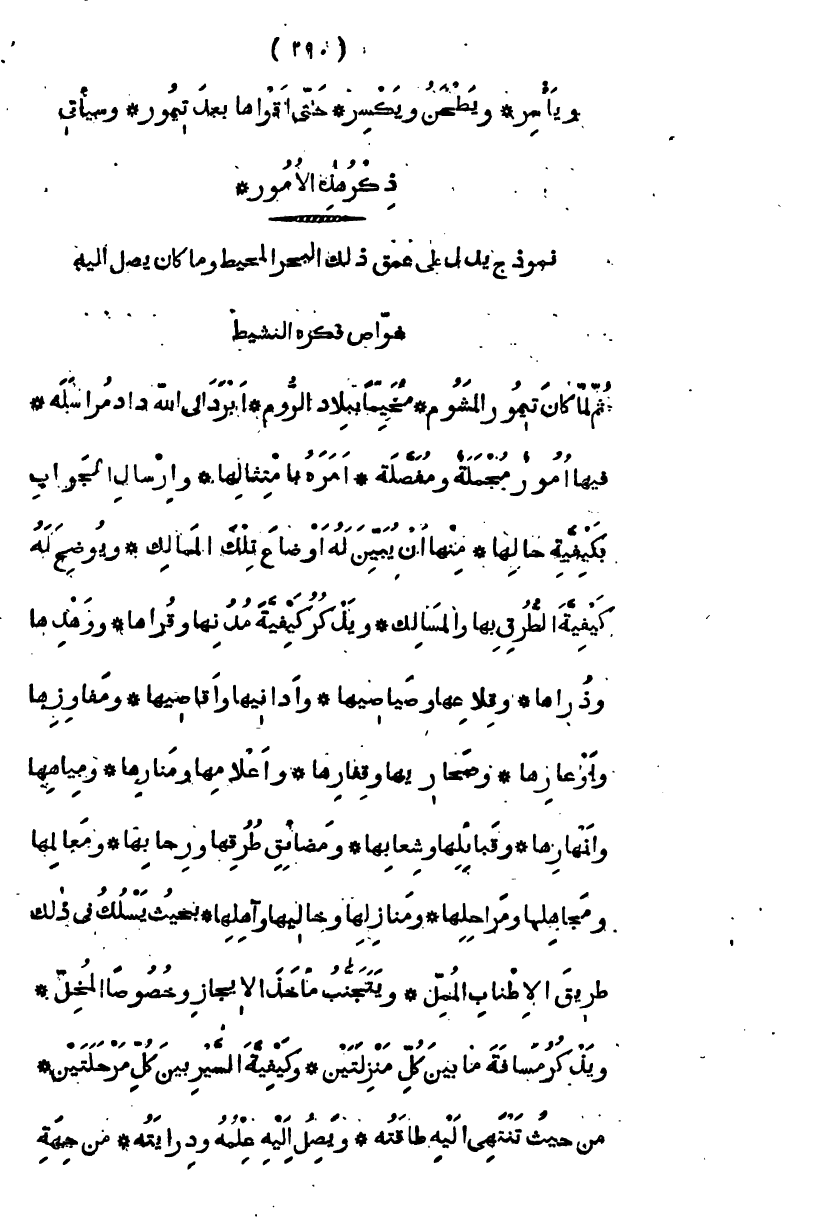 ( ٢٩٠ )
ويَأْسِر * ويَطْحَنُ ويَكْسِر * حَتّى اَقْواها بعدَ تِيمُور * وسيأتي
ذِكْرُ هذِهِ الاُمُور *
نموذج يدل على عمق ذلك البحر المحيط وما كان يصل اليه
غواص فكره النشيط
ثُمّ لمّا كانَ تَيمُور المشَوُم * مُخَيِّماً ببِلاد الرُّوم * اَبْرَدَ الى اللّه داد مُراسَلَه *
فيها اُمُورٌ مُجْمَلَةٌ ومُفَصَّلَة * اَمَرَهُ بامْتِثالِها * وإرْسالِ الجَوابِ
بكَيْفِيّةِ حالِها * مِنْها اَنْ يُبَيِّنَ لَهُ اَوْضاعَ تِلْكَ المَمالِك * ويُوضِحَ لَهُ
كَيْفِيّةَ الطُّرُقِ بِها والمَسَالِك * ويَذْكُرُ كَيْفِيّةَ مُدُنِها وقُراها * ووَهْدِها
وذُراها * وقِلاعِها وصَياصِيها * واَدانِيها واَقاصِيها * ومَفاوِزِها
واَوْعارِها * وصَحارِيها وقِفارِها * واَعْلامِها ومَنارِها * ومِياهِها
واَنْهارِها * وقَبائِلِها وشِعابِها * ومَضائِقِ طُرُقِها ورِحابِها * ومَعالِمِها
ومَجاهِلِها ومَراحِلِها * ومَنازِلِها وخالِيها وآهِلِها * بحَيثُ يَسْلُكُ فى ذٰلك
طرِيقَ الاِطْنابِ المُمِلّ * ويَتَجَنَّبُ مَأْخَذَ الايجازِ وخُصُوصاً المُخِلّ *
ويَذْكُرُ مَسافَةَ ما بينَ كُلِّ مَنْزِلَتَيْن * وكَيْفِيّةَ السَّيْرِ بينَ كُلِّ مَرْحَلَتَيْن *
من حيثُ تَنْتَهِى اليْهِ طاقَتُه * ويَصِلُ اِلَيْهِ عِلْمُهُ ودِرايَتُه * من جِهَةِ